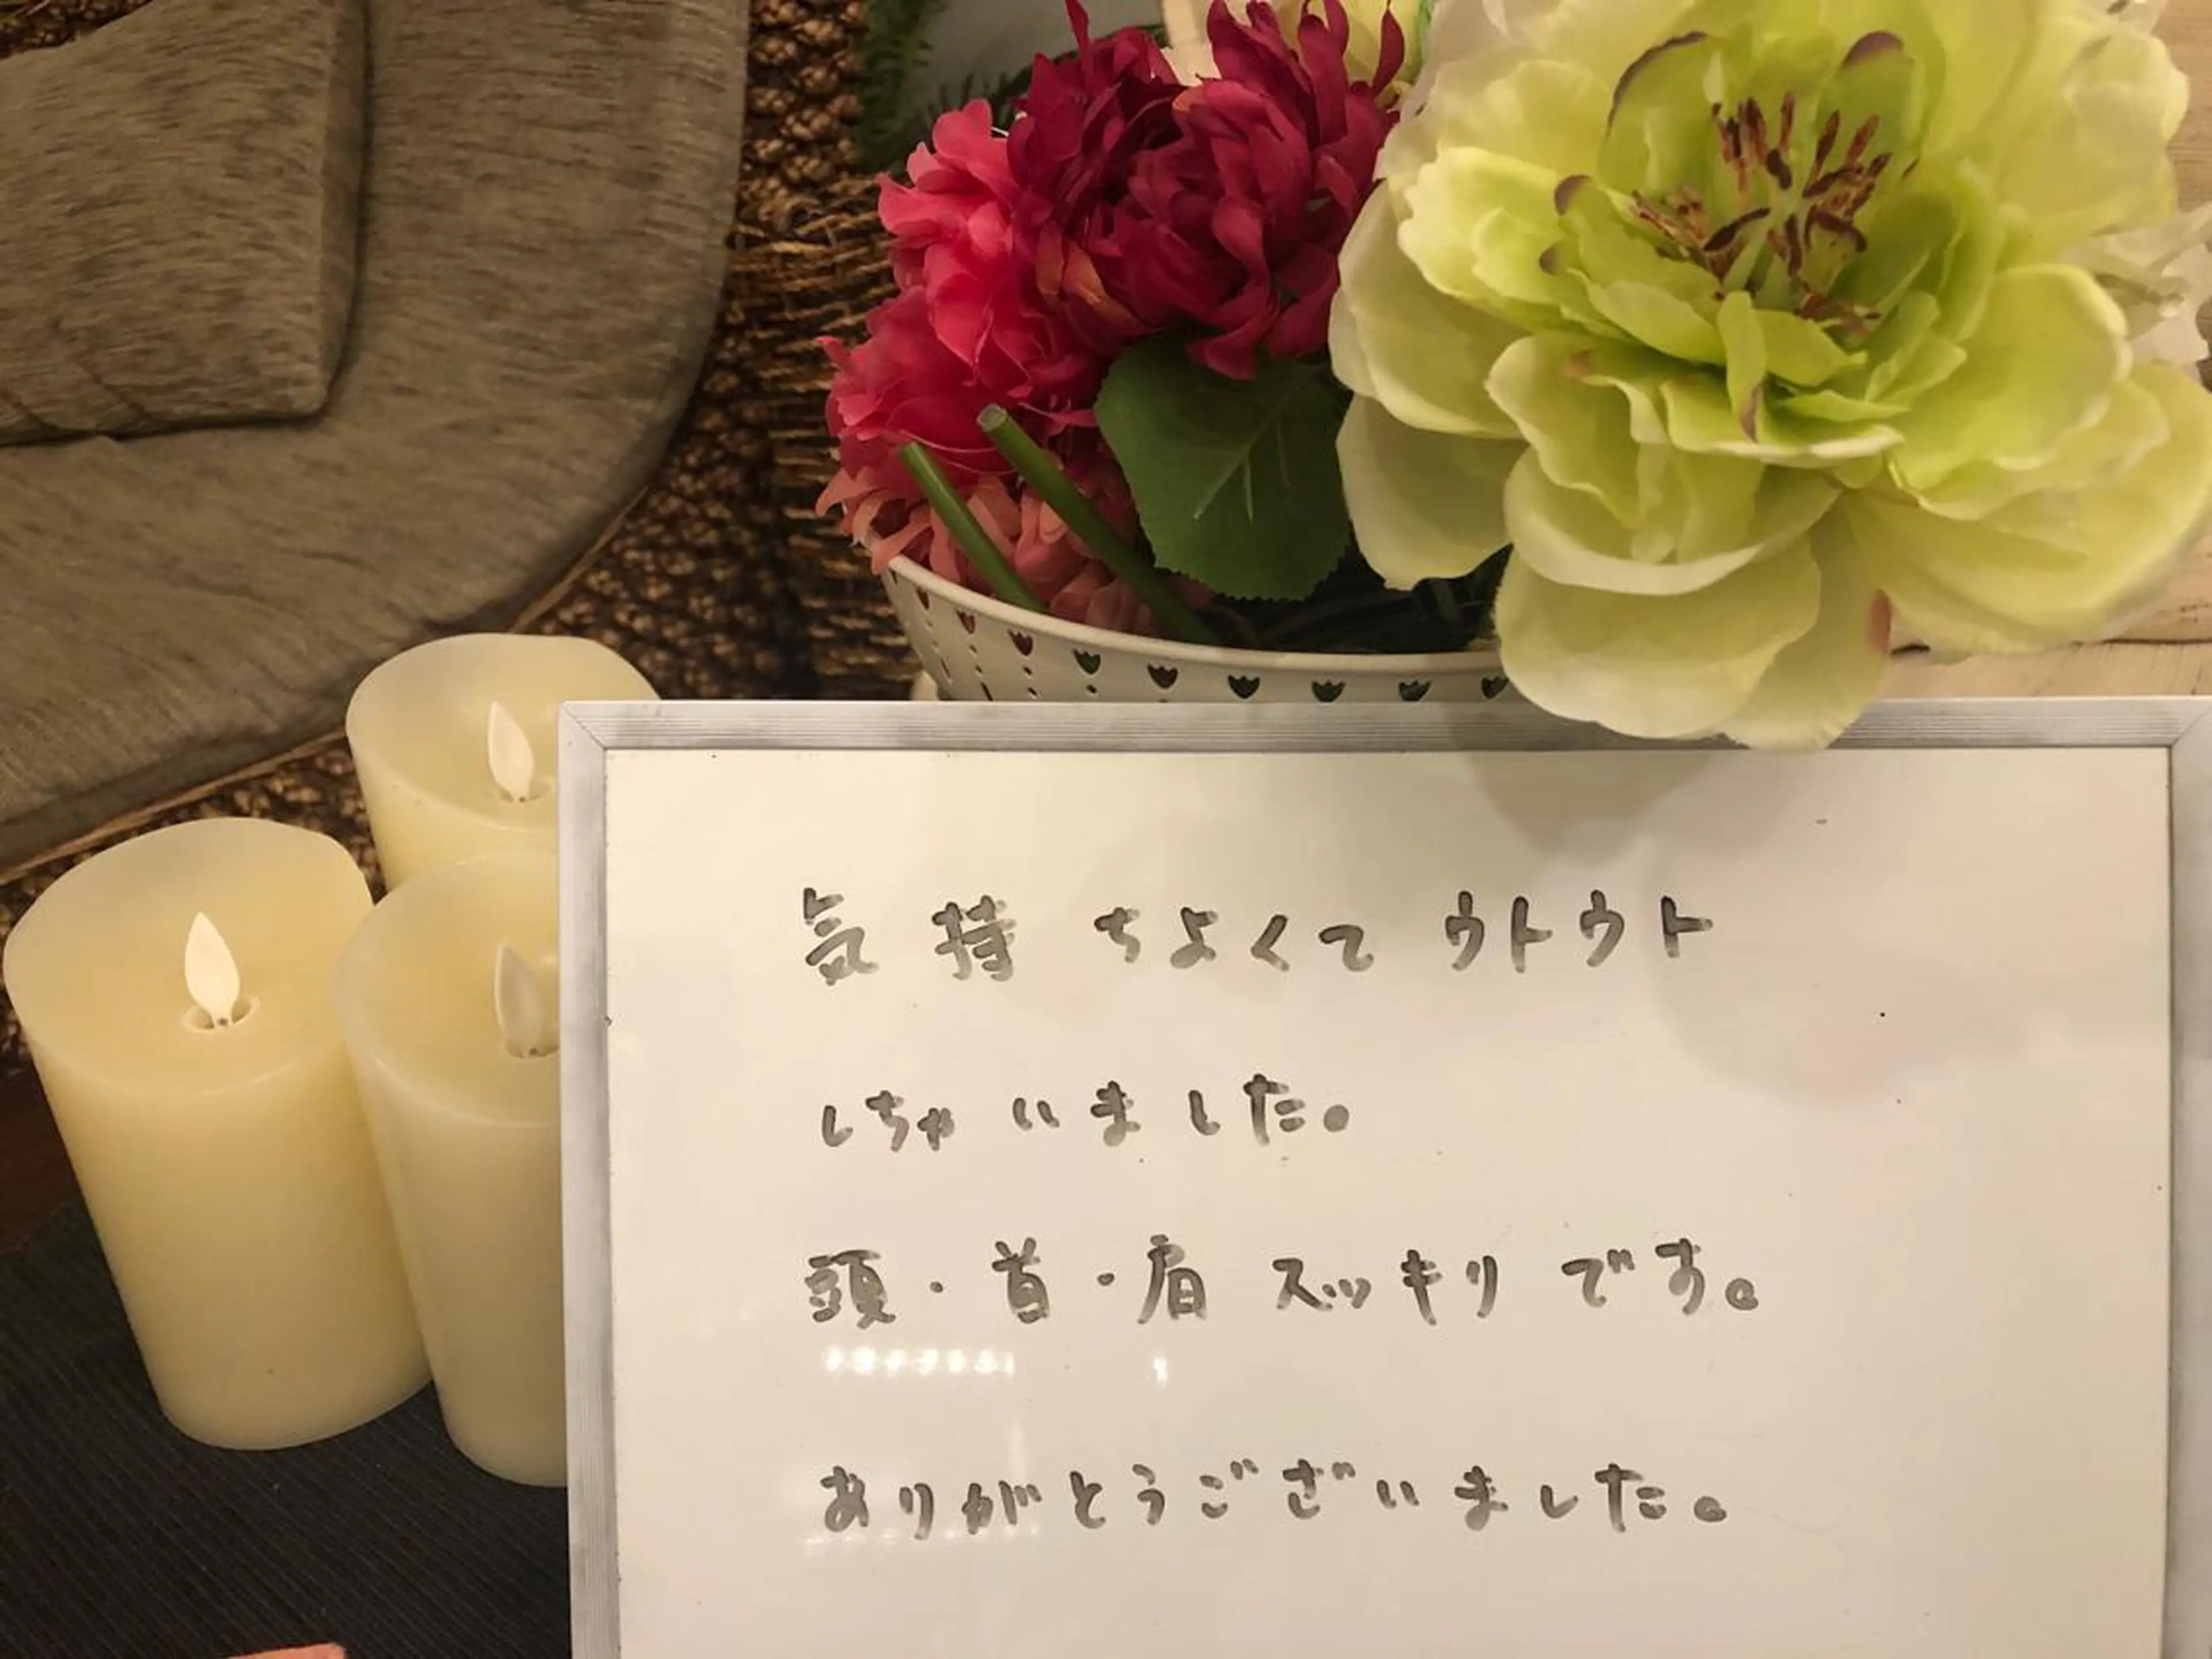 気持ちよくてウトウト
しちゃいました。
頭・首・肩スッキリです。
ありがとうございました。